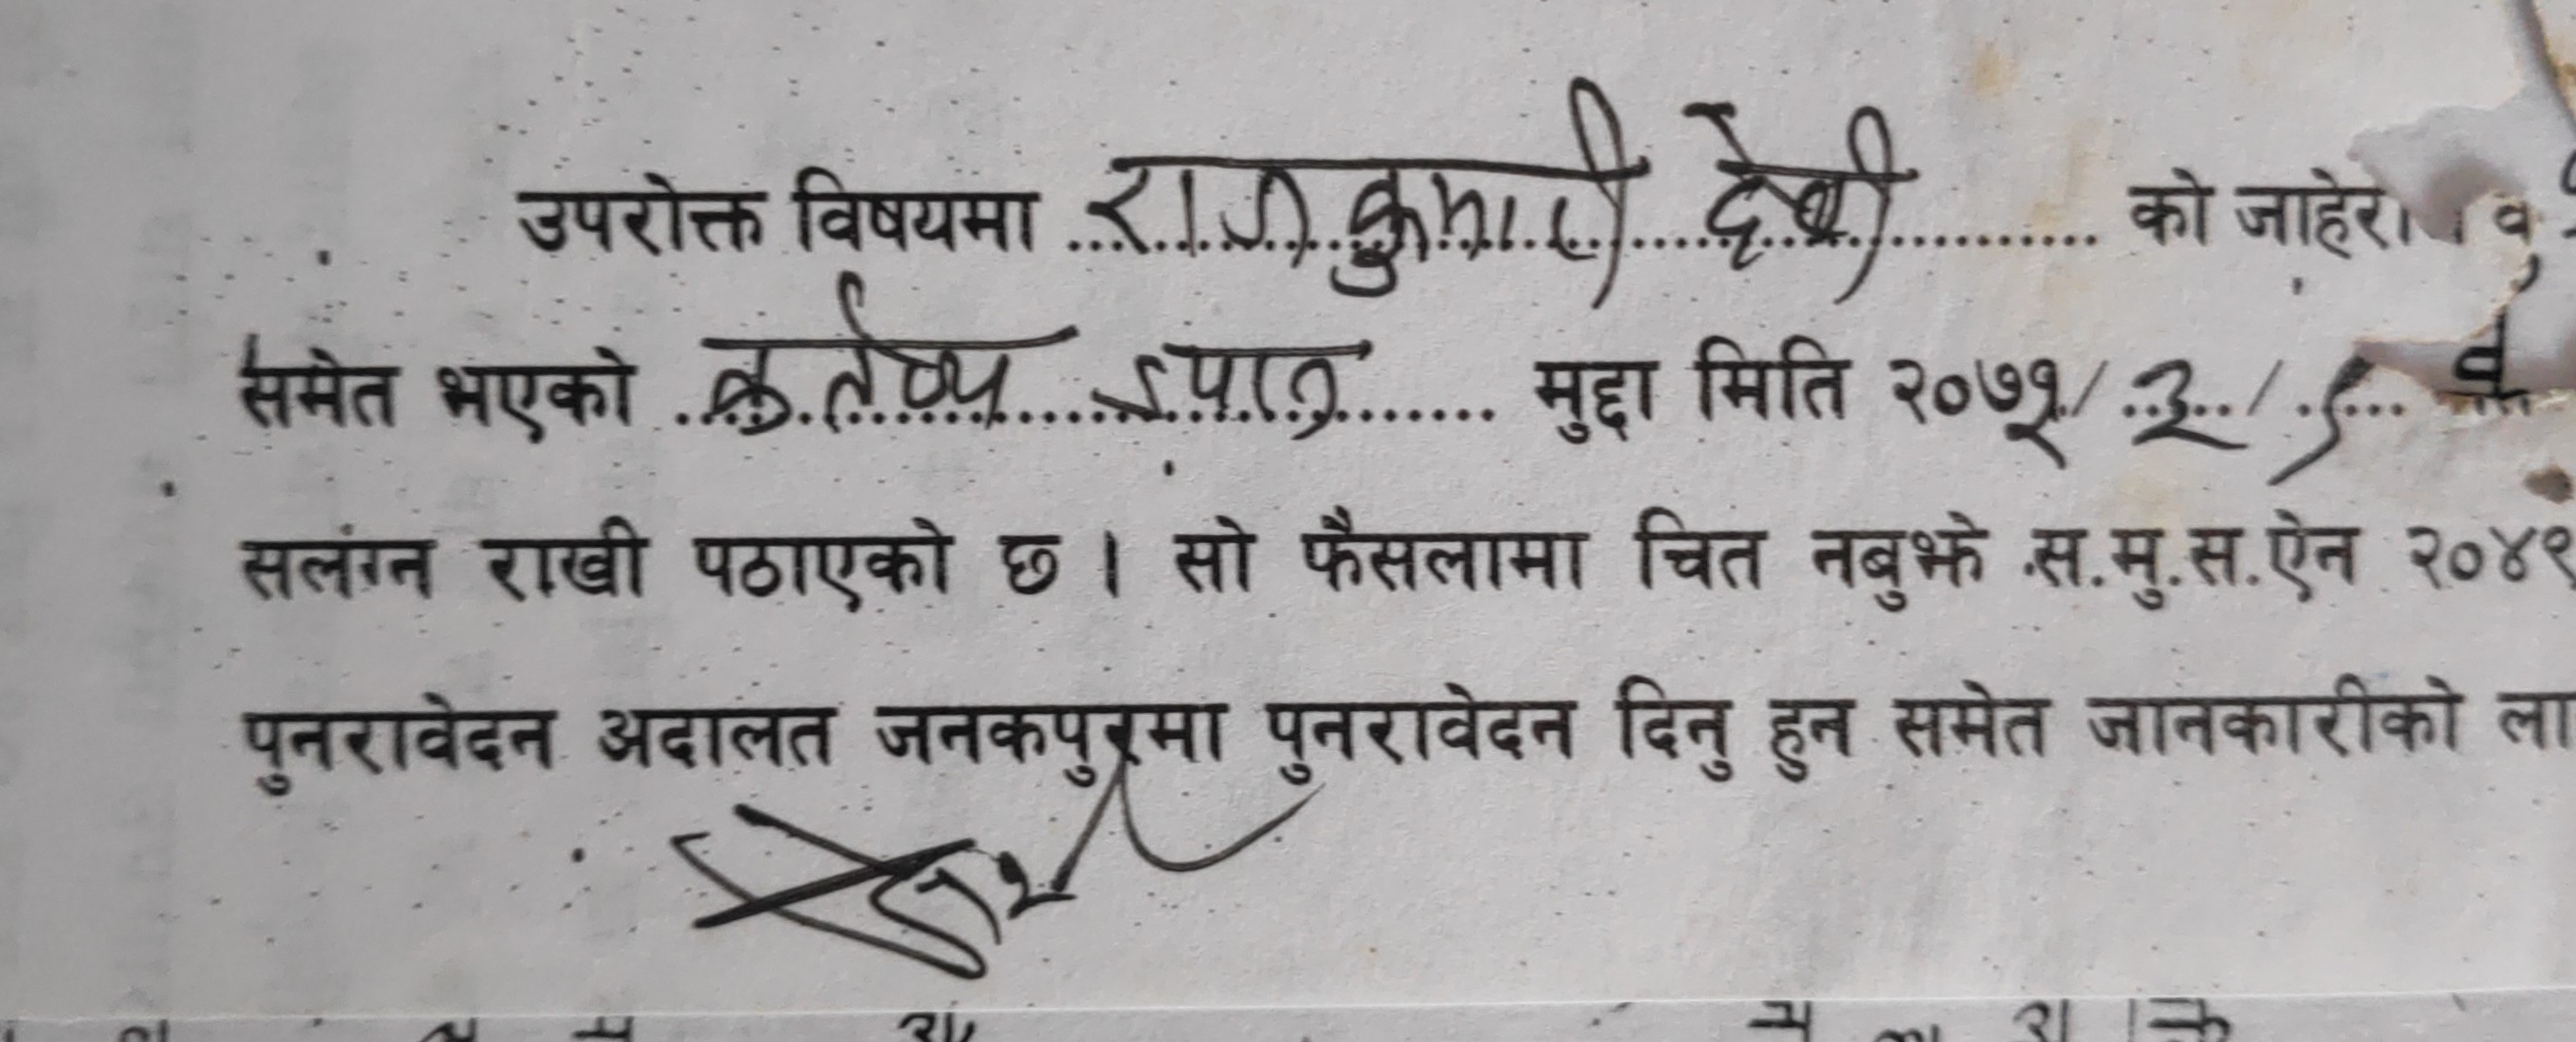 उपरोक्त विषयमा राजकुमारी देवी को जाहेरी
समेत भएको कर्तव्य ज्यान मुद्दा मिति २०७१/३/९
सलंग्न राखी पठाएको छ । सो फैसलामा चित नबुझे स.मु.स.ऐन २०४९
पुनरावेदन अदालत जनकपुरमा पुनरावेदन दिनु हुन समेत जानकारीको ला